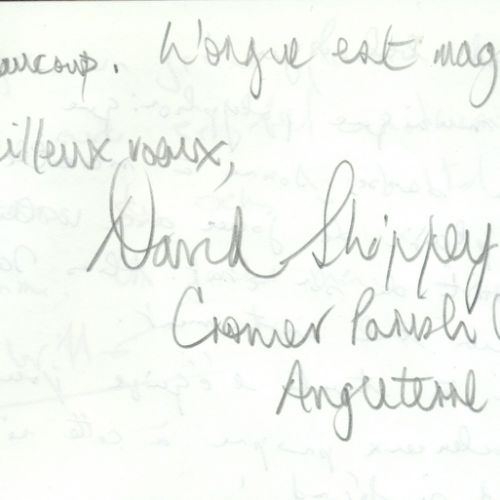 aucoup. L'orgue est mag
illeux voeux,
David Shippey
Cromer Parish
Angleterre